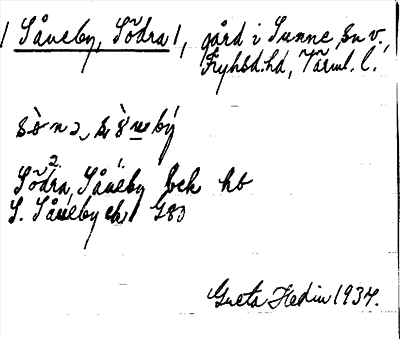 Såneby, Södra, gård i Sunne sn v.,
Fryksd.hd, Värml. l.
Södra, Såneby bek hb
S. Såneby ek G83
Greta Hedin 1937.